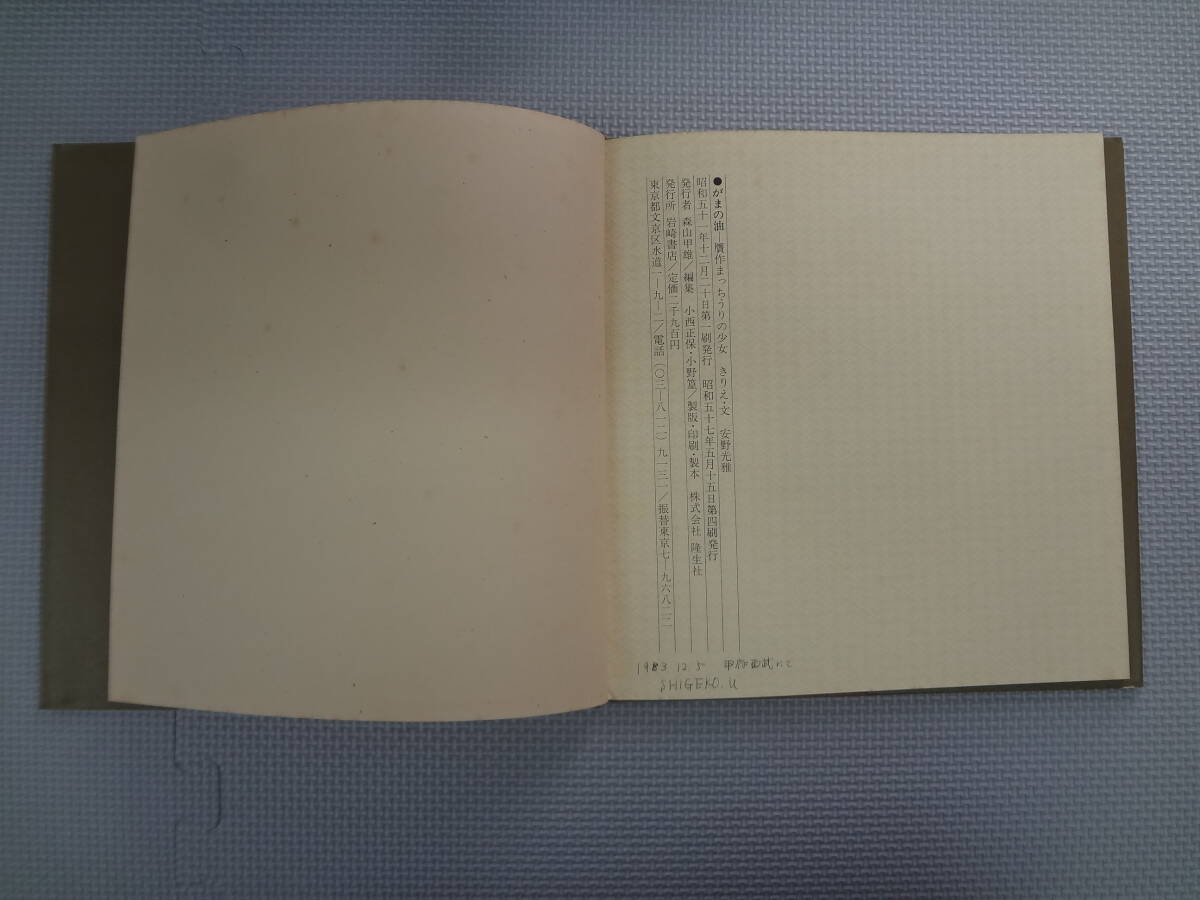 ●がまの油―贋作まっちうりの少女　きりえ・文　安野光雅
昭和五十一年十二月二十日第一刷発行　昭和五十七年五月十五日第四刷発行
発行者　森山甲雄／編集　小西正保・小野篁／製版・印刷・製本　株式会社　隆生社
発行所　岩崎書店／定価二千九百円
東京都文京区水道一―九―二／電話（〇三―八一二）九一三一／振替東京七―九六八二二
1983 12.5　甲府西武にて
SHIGEKO.U